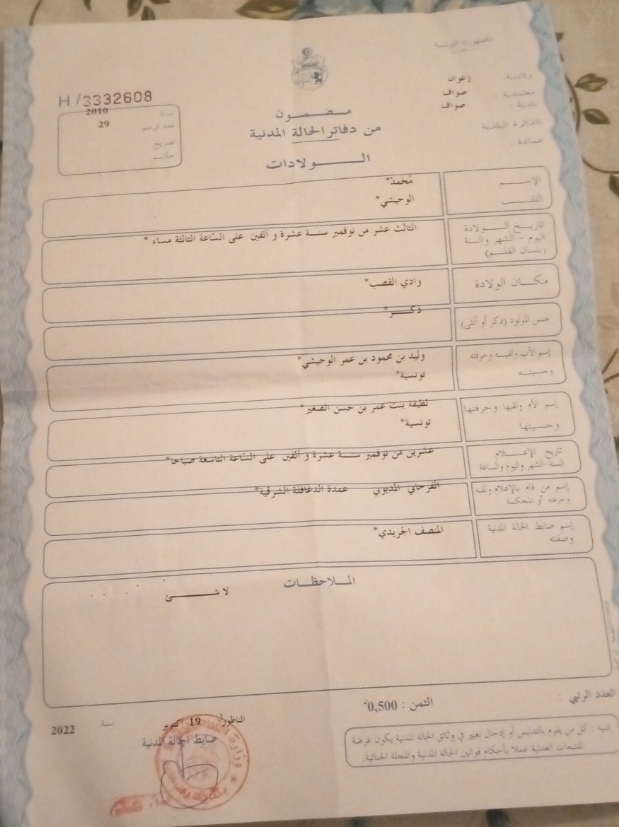 الجمهورية التونسية
ولاية: زغوان
معتمدية: صواف
بلدية: صواف
الدائرة البلدية
عمادة:
H/3332608
سنة 2010
عدد الرسم 29
مضمون
من دفاتر الحالة المدنية
الولادات
الإسم محمد*
اللقب الوحيشي*
تاريخ الولادة
اليوم - الشهر والسنة
(بلسان القلم)
الثالث عشر من نوفمبر سنة عشرة و ألفين على الساعة الثالثة مساء *
مكان الولادة وادي القصب*
جنس المولود (ذكر أو أنثى) ذكر*
إسم الأب ولقبه وحرفته وليد بن محمود بن عمر الوحيشي*
وجنسيته تونسية*
إسم الأم ولقبها وحرفتها لطيفة بنت عمر بن حسن الصغير*
وجنسيتها تونسية*
تاريخ الإعلام
السنة-الشهر واليوم والساعة
عشرين من نوفمبر سنة عشرة و ألفين على الساعة التاسعة صباحا*
إسم من قام بالإعلام ولقبه
وحرفته أو المحكمة
الفرجاني المديوني عمدة الدغافلة الشرقية*
إسم ضابط الحالة المدنية
وصفته
المنصف الجريدي*
الملاحظات
لا شئ
العدد الرتبي :
الثمن : 0,500د
الناظور 19 أكتوبر سنة 2022
ضابط الحالة المدنية
تنبيه : كل من يقوم بالتدليس أو إدخال تغيير في وثائق الحالة المدنية يكون عرضة
للتتبعات العدلية عملا بأحكام قوانين الحالة المدنية والمجلة الجنائية.